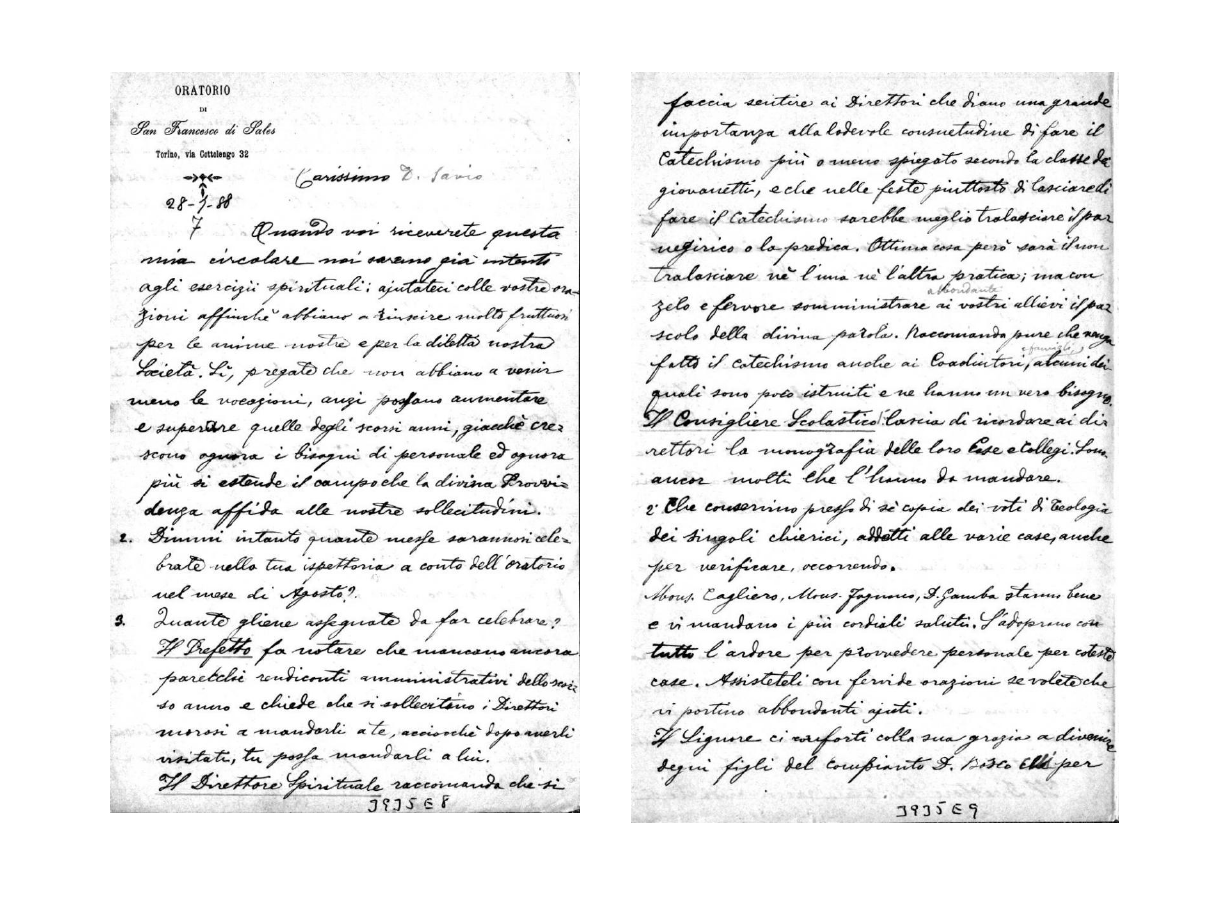 ORATORIO
DI
San Francesco di Sales
Torino, via Cottolengo 32
Carissimo D. Savio
28-7-88
7
Quando voi riceverete questa
mia circolare noi saremo già intenti
agli esercizii spirituali; ajutateci colle vostre ora-
zioni affinchè abbiano a riuscire molto fruttuosi
per le anime nostre e per la diletta nostra
Società. Sì, pregate che non abbiano a venir
meno le vocazioni, anzi possano aumentare
e superare quelle degli scorsi anni, giacchè cre-
scono ognora i bisogni di personale ed ognora
più si estende il campo che la divina Provvi-
denza affida alle nostre sollecitudini.
2. Dimmi intanto quante messe saranno cele-
brate nella tua ispettoria a conto dell'oratorio
nel mese di Agosto?
3. Quante gliene assegnate da far celebrare?
Il Prefetto fa notare che mancano ancora
parecchi rendiconti amministrativi dello scor-
so anno e chiede che si sollecitino i Direttori
morosi a mandarli a te, acciocchè dopo averli
visitati, tu possa mandarli a lui.
Il Direttore Spirituale raccomanda che si
3935E8
faccia sentire ai Direttori che diano una grande
importanza alla lodevole consuetudine di fare il
Catechismo più o meno spiegato secondo la classe de
giovanetti, e che nelle feste piuttosto di lasciare di
fare il Catechismo sarebbe meglio tralasciare il pa-
negirico o la predica. Ottima cosa però sarà il non
tralasciare nè l'una nè l'altra pratica; ma con
abbondante
zelo e fervore somministrare ai vostri allievi il pa-
scolo della divina parola. Raccomando pure che venga
e famigli
fatto il catechismo anche ai Coadiutori, alcuni dei
quali sono poco istruiti e ne hanno un vero bisogno.
Il Consigliere Scolastico lascia di ricordare ai di-
rettori la monografia delle loro Case e Collegi. Sono
ancor molti che l'hanno da mandare.
2° Che conservino presso di sè copia dei voti di teologia
dei singoli chierici, addetti alle varie case, anche
per verificare, occorrendo.
Mons. Cagliero, Mons. Fagnano, D. Gamba stanno bene
e vi mandano i più cordiali saluti. S'adoprano con
tutto l'ardore per provvedere personale per coteste
case. Assisteteli con fervide orazioni se volete che
vi portino abbondanti ajuti.
Il Signore ci conforti colla sua grazia a divenire
degni figli del compianto D. Bosco per
3935E9